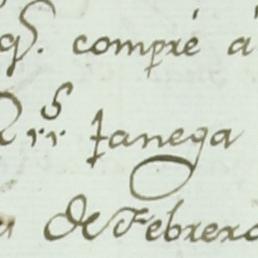 qS. compré á
rrS fanega
de Febrero